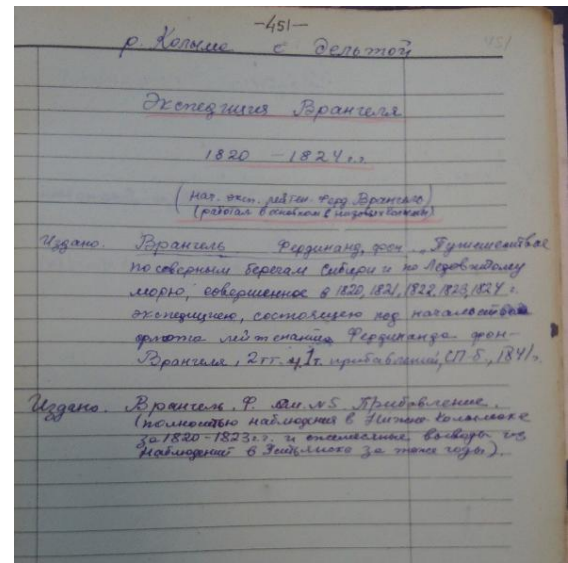 —451—
451
р. Колыма с дельтой
Экспедиция Врангеля
1820 — 1824 г.г.
(нач. эксп. лейтен. Ферд Врангель)
(работал в основном в низовьях Колымы)
Издано. Врангель Фердинанд, фон. Путешествие
по северным берегам Сибири и по Ледовитому
морю, совершенное в 1820, 1821, 1822, 1823, 1824 г.
экспедициею, состоящею под начальством
флота лейтенанта Фердинанда фон-
Врангеля, 2 тт. и 1 т. прибавлений, СП-б., 1841 г.
Издано. Врангель, Ф. см. №5 Прибавление.
(полностью наблюдения в Нижне-Колымске
за 1820-1823 г.г. и ежемесячные выводы из
наблюдений в Устьянске за те же годы).